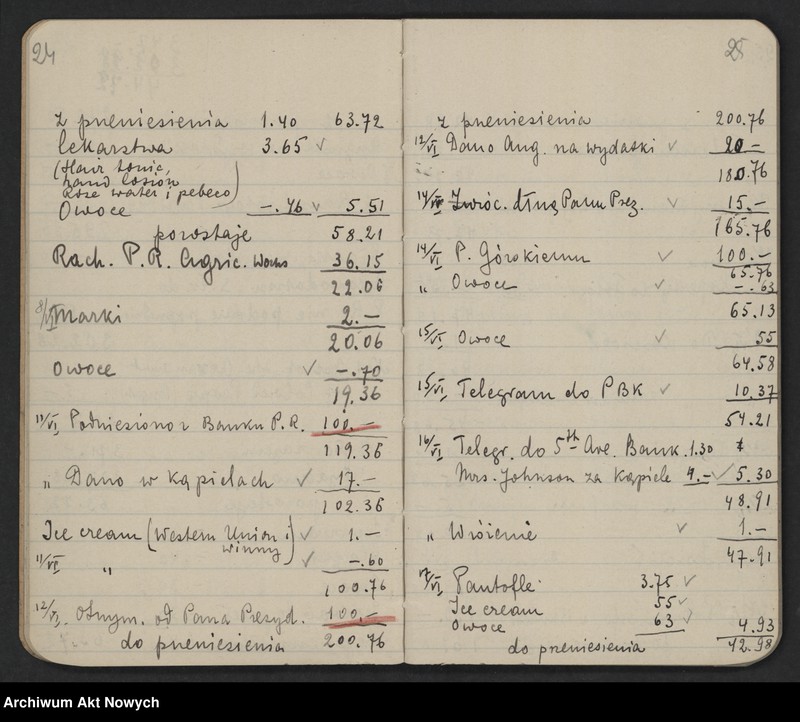 24
z przeniesienia 1.40 63.72
Lekarstwa 3.65 ✓
(Hair tonic,
hand lotion
Rose water i pebeco)
Owoce -.46 ✓ 5.51
pozostaje 58.21
Rach. P. R. Agric. Works 36.15
22.06
8/VI Marki 2.-
20.06
Owoce ✓ -.70
19.36
11/VI Podniesiono z Banku P.R. 100.-
119.36
„ Dano w kąpielach ✓ 17.-
102.36
Ice cream (Western Union i ✓ 1.-
winny)
11/VI „ ✓ -.60
100.76
12/VI. Otrzym. od Pana Prezyd. 100.-
do przeniesienia 200.76
25
z przeniesienia 200.76
12/VI Dano Ang. na wydatki ✓ 20.-
180.76
14/VI Zwróc. dług Panu Prez. ✓ 15.-
165.76
14/VI P. Górskiemu ✓ 100.-
65.76
„ Owoce ✓ -.63
65.13
15/VI Owoce ✓ 55
64.58
15/VI Telegram do PBK ✓ 10.37
54.21
16/VI Telegr. do 5th Ave. Bank. 1.30
Mrs. Johnson za Kąpiele 4.- ✓ 5.30
48.91
„ Wróżenie ✓ 1.-
47.91
17/VI Pantofle 3.75 ✓
Ice cream 55 ✓
Owoce 63 ✓ 4.93
do przeniesienia 42.98
Archiwum Akt Nowych